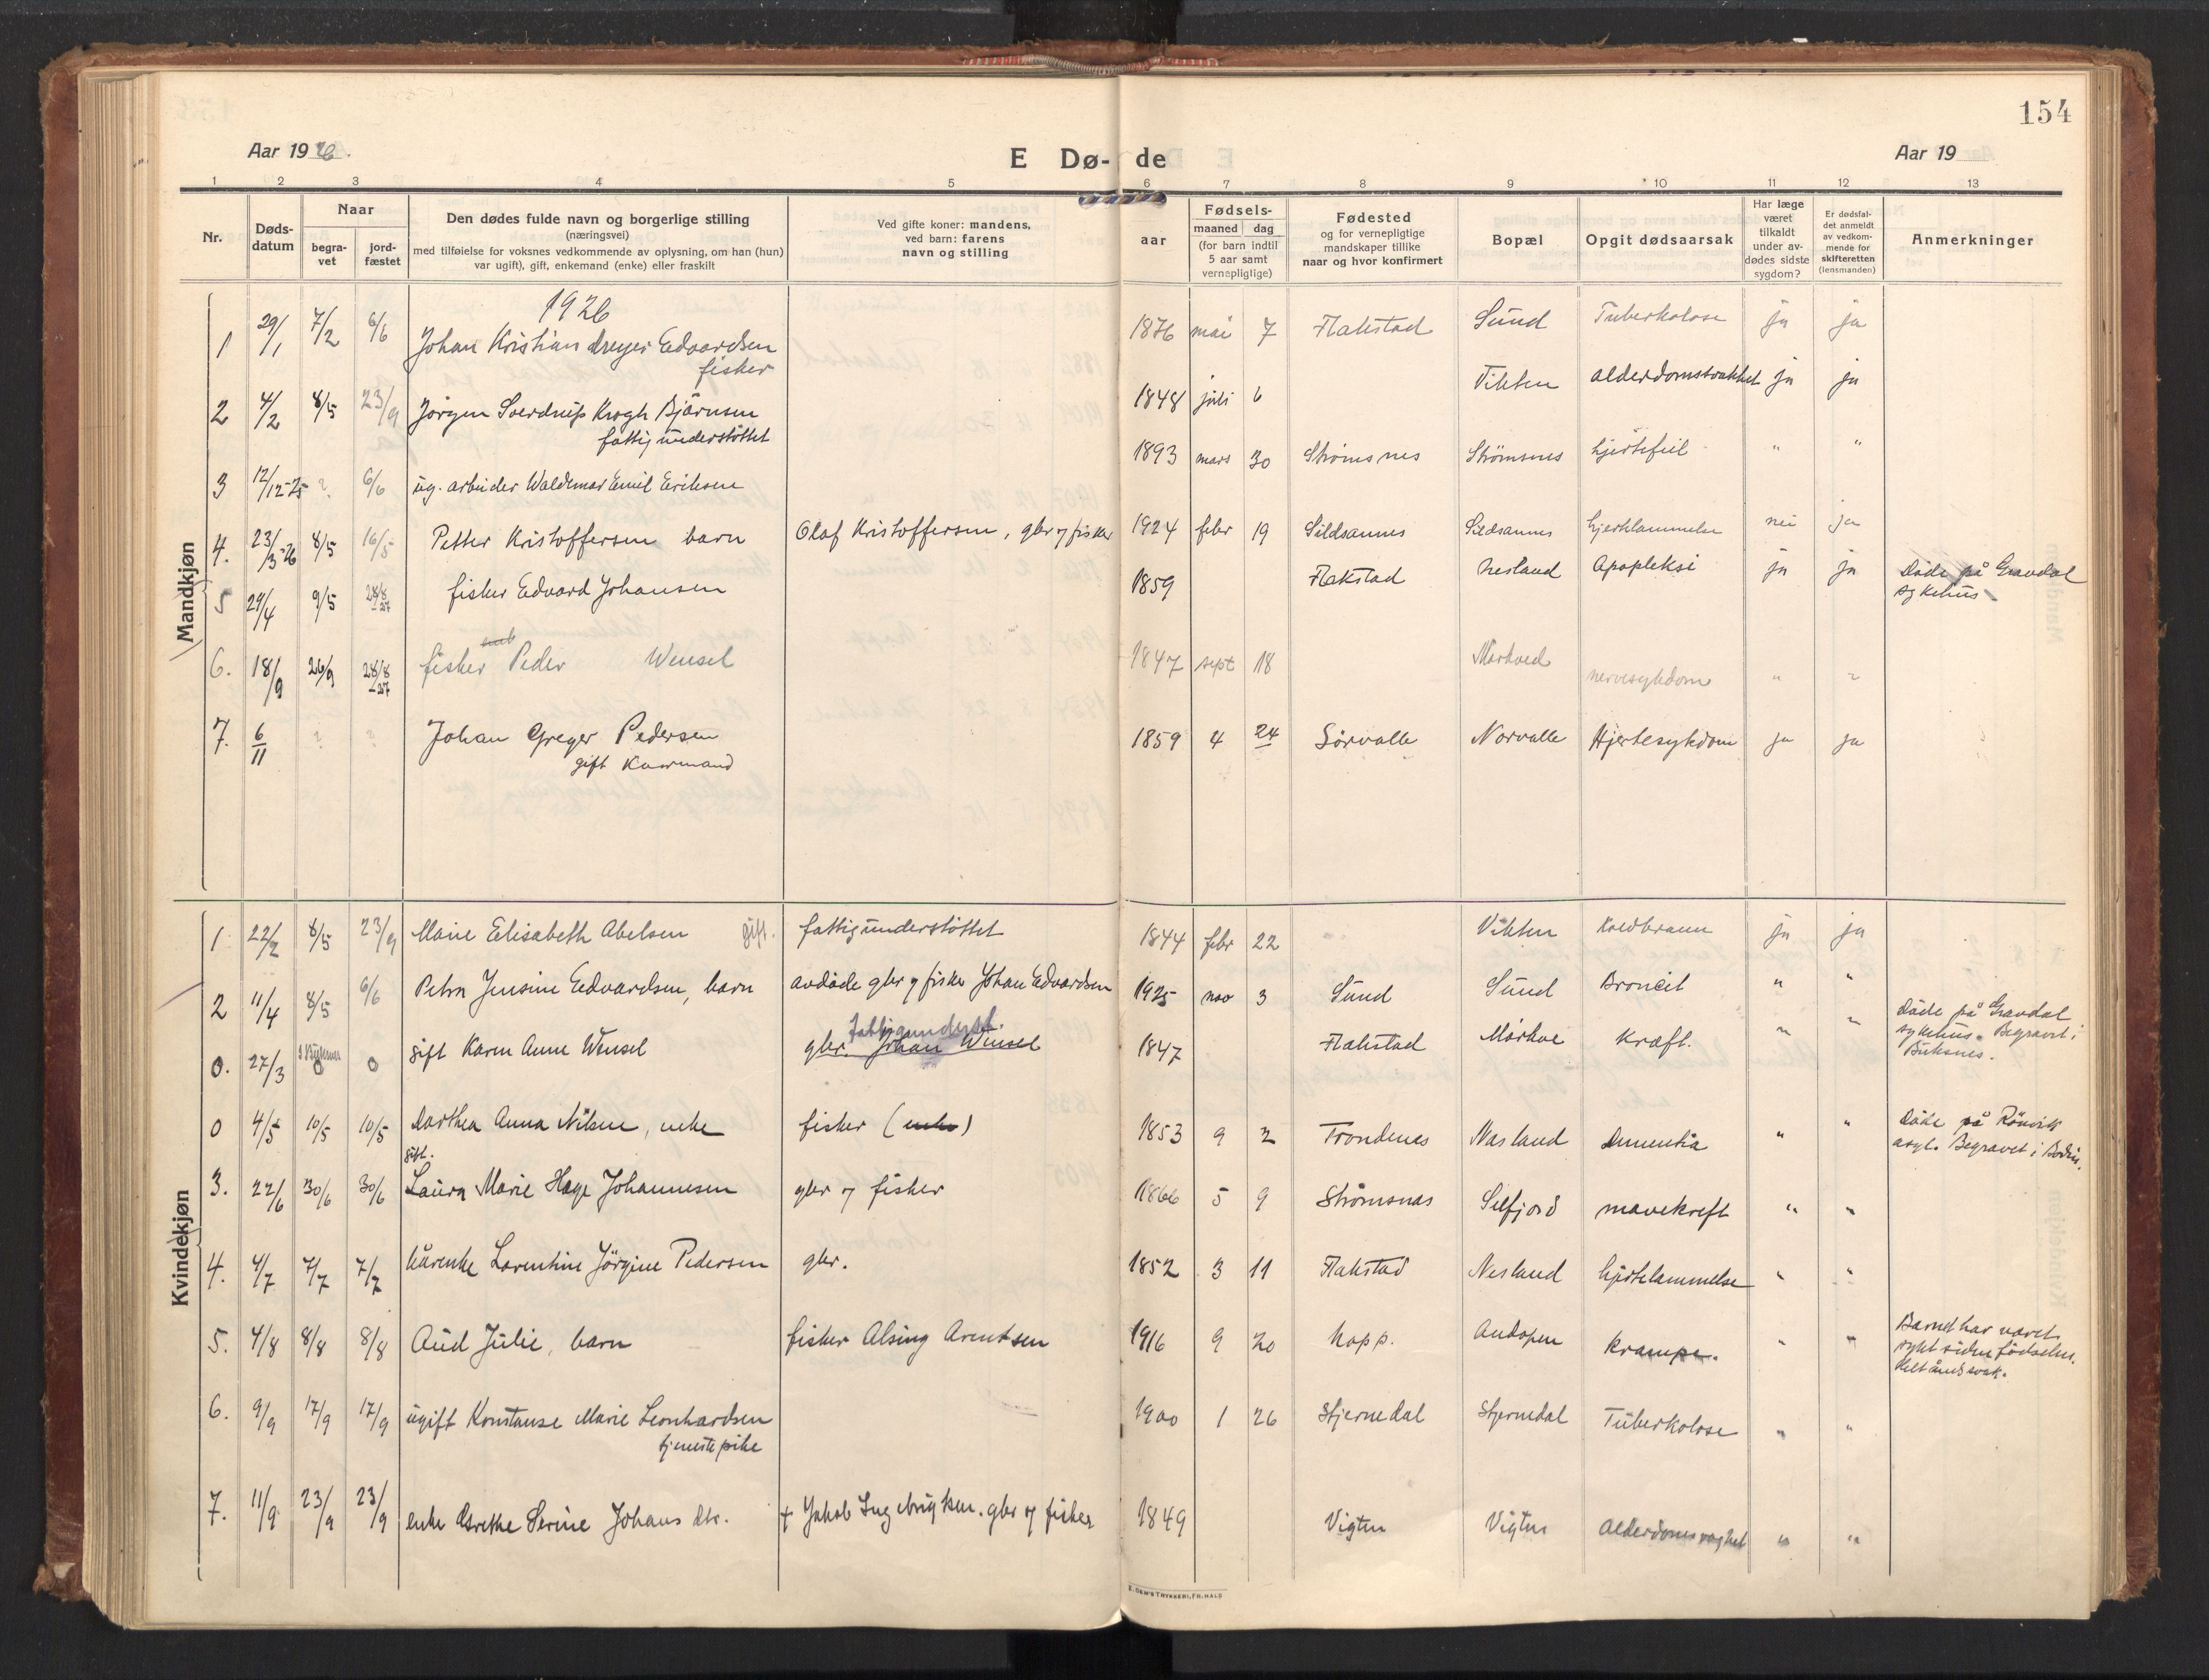 154
Aar 1926.
E Dø- de
Aar 19
1 2 3 4 5 6 7 8 9 10 11 12 13
Nr.
Døds-
datum
Naar
begra-
vet
jord-
fæstet
Den dødes fulde navn og borgerlige stilling
(næringsvei)
med tilføielse for voksnes vedkommende av oplysning, om han (hun)
var ugift), gift, enkemand (enke) eller fraskilt
Ved gifte koner: mandens,
ved barn: farens
navn og stilling
aar
Fødsels-
maaned dag
(for barn indtil
5 aar samt
vernepliglige)
Fødested
og for vernepligtige
mandskaper tillike
naar og hvor konfirmert
Bopæl
Opgit dødsaarsak
Har læge
været
tilkaldt
under av-
dødes sidste
sygdom?
Er dødsfal-
det anmeldt
av vedkom-
mende for
skifteretten
(lensmanden)
Anmerkninger
Mandkjøn
1926
1 29/1 7/2 6/6 Johan Kristian dreyer Edvardsen 1876 mai 7 Flakstad Sund Tuberkolose ja ja
fisker
2 4/2 8/5 23/9 Jørgen Sverdrup Krogh Bjørnsen 1848 juli 6 Vikten alderdomssvakhet ja ja
fattigunderstøttet
3 12/12-25 ? 6/6 ug. arbeider Waldemar Emil Eriksen 1893 mars 30 Strømsnes Strømsnes hjertefeil " "
4. 23/3-26 8/5 16/5 Petter Kristoffersen barn Olaf Kristoffersen, gbr og fisker 1924 febr 19 Sildsannes Sildsannes hjertelammelse nei ja
5 29/4 9/5 28/8-27 fisker Edvard Johansen 1859 Flakstad Nesland Apopleksi ja ja Døde på Gravdal
sykehus
6. 18/9 26/9 28/8-27 fisker Peder Wensel 1847 sept 18 Mörkved nervesykdom " "
7. 6/11 ? ? Johan Greger Pedersen 1859 4 24 Sörvalle Norvalle Hjertesykdom ja ja
gift Kaarmand
Kvindekjøn
1 22/2 8/5 23/9 Marie Elisabeth Abelsen gift. fattigunderstøttet 1844 febr 22 Vikten Koldbrann ja ja
2 11/4 8/5 6/6 Petra Jensine Edvardsen, barn avdøde gbr og fisker Johan Edvardsen 1925 nov 3 Sund Sund Broncit " "
fattigunderst.
0. 27/3 i Buksnes 0 0 gift Karen Anne Wensel gbr. Johan Wensel 1847 Flakstad Mörkve Kræft. " " Døde på Gravdal
sykehus. Begravet i
Buksnes.
0 4/5 10/5 10/5 Dorthea Anna Nilsen, enke fisker (enke) 1853 9 2 Trondenes Nesland Dementia " " Døde på Rönvik
asyl. Begravet i Bodin.
gift.
3. 22/6 30/6 30/6 Laura Marie Hage Johannesen gbr og fisker 1866 5 9 Strömsnes Selfjord mavekreft " "
4. 4/7 7/7 7/7 kårenke Lorentine Jörgine Pedersen gbr. 1852 3 11 Flakstad Nesland hjertelammelse " "
5. 4/8 8/8 8/8 Aud Julie, barn fisker Alsing Arentsen 1916 9 20 Napp. Andopen Krampe. " " Barnet har været
sykt siden födselen.
Helt åndssvak.
6. 9/9 17/9 17/9 ugift Konstanse Marie Leonhardsen 1900 1 26 Stjernedal Stjernedal Tuberkolose " "
tjenestepike
7. 11/9 23/9 23/9 enke Grethe Serine Johans dtr. + Jakob Ingebrigtsen. gbr og fisker 1849 Vigten Vigten Alderdomsvaghet " "
E. DEM'S TRYKKERI, FR.HALD